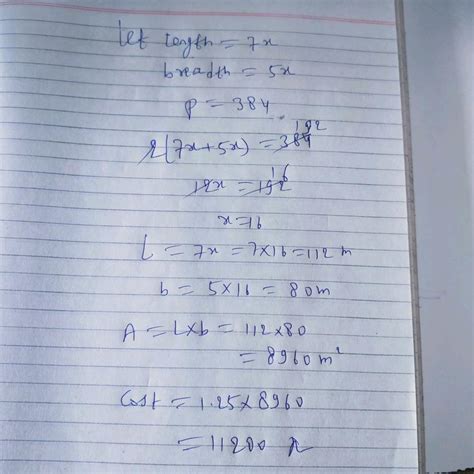 Let length = 7x
breadth = 5x
P = 384
2(7x+5x) = 384 192
12x = 192 16
x = 16
L = 7x = 7×16 = 112 m
b = 5×16 = 80m
A = L×b = 112×80
= 8960 m²
Cost = 1.25×8960
= 11200